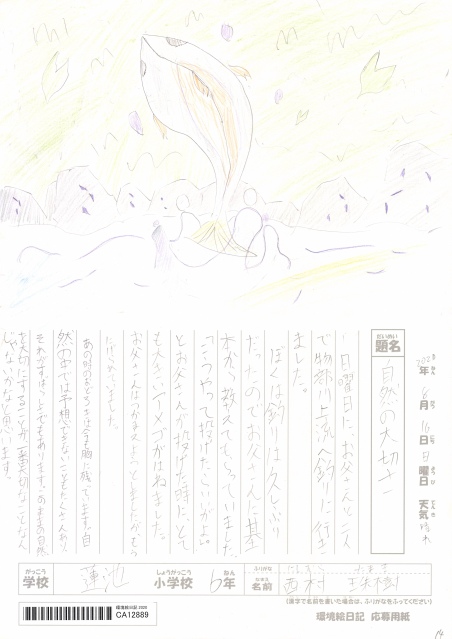 だいめい
題名
自然の大切さ
2020年 8月 16日 日曜日 天気 晴れ
日曜日に、お父さんと二人
で物部川上流へ釣りに行き
ました。
ぼくは釣りは久しぶり
だったのでお父さんに基
本から教えてもらっていました。
「こうやって投げたらいいがよ。」
とお父さんが投げた時に、とて
も大きいアメゴがはねました。
お父さんは
ました。
あの時のおどろきは今も脳に残っています。自
然の中では予想できないことも
それがずっと
を大切にすることが一番大切なことなん
じゃないかなと思います。
がっこう
学校
蓮池
しょうがっこう
小学校
6年
ねん
ふりがな
にしむら たまき
なまえ
名前
西村 珠樹
(漢字で名前を書いた場合は、ふりがなをふってください)
環境絵日記 2020
CA12889
環境絵日記 応募用紙
14